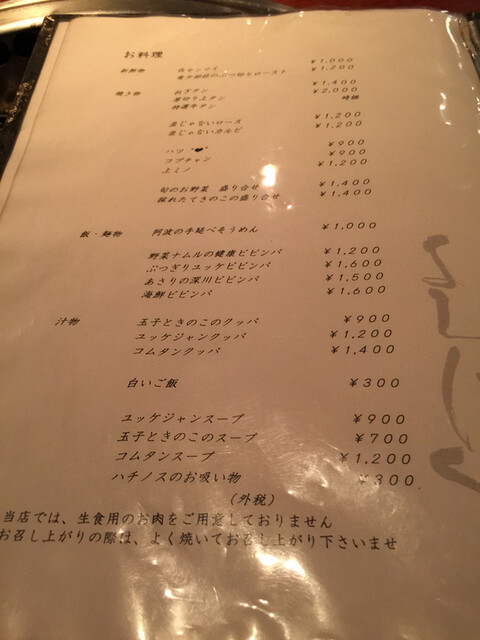 お料理
新鮮物 白センマイ ¥1,000
ぶつ切りロースト ¥1,200
焼き物 ねぎタン ¥1,400
厚切り上タン ¥2,000
特選牛タン 時価
並じゃないロース ¥1,200
並じゃないカルビ ¥1,200
ハツ ¥900
コプチャン ¥900
上ミノ ¥1,200
旬のお野菜 盛り合せ ¥1,400
採れたてきのこの盛り合せ ¥1,400
飯・麺物 阿波の手延べそうめん ¥1,000
野菜ナムルの健康ビビンバ ¥1,200
ぶつぎりユッケビビンバ ¥1,600
あさりの深川ビビンバ ¥1,500
海鮮ビビンバ ¥1,600
汁物 玉子ときのこのクッパ ¥900
ユッケジャンクッパ ¥1,200
コムタンクッパ ¥1,400
白いご飯 ¥300
ユッケジャンスープ ¥900
玉子ときのこのスープ ¥700
コムタンスープ ¥1,200
ハチノスのお吸い物 ¥300
(外税)
当店では、生食用のお肉をご用意しておりません
お召し上がりの際は、よく焼いてお召し上がり下さいませ